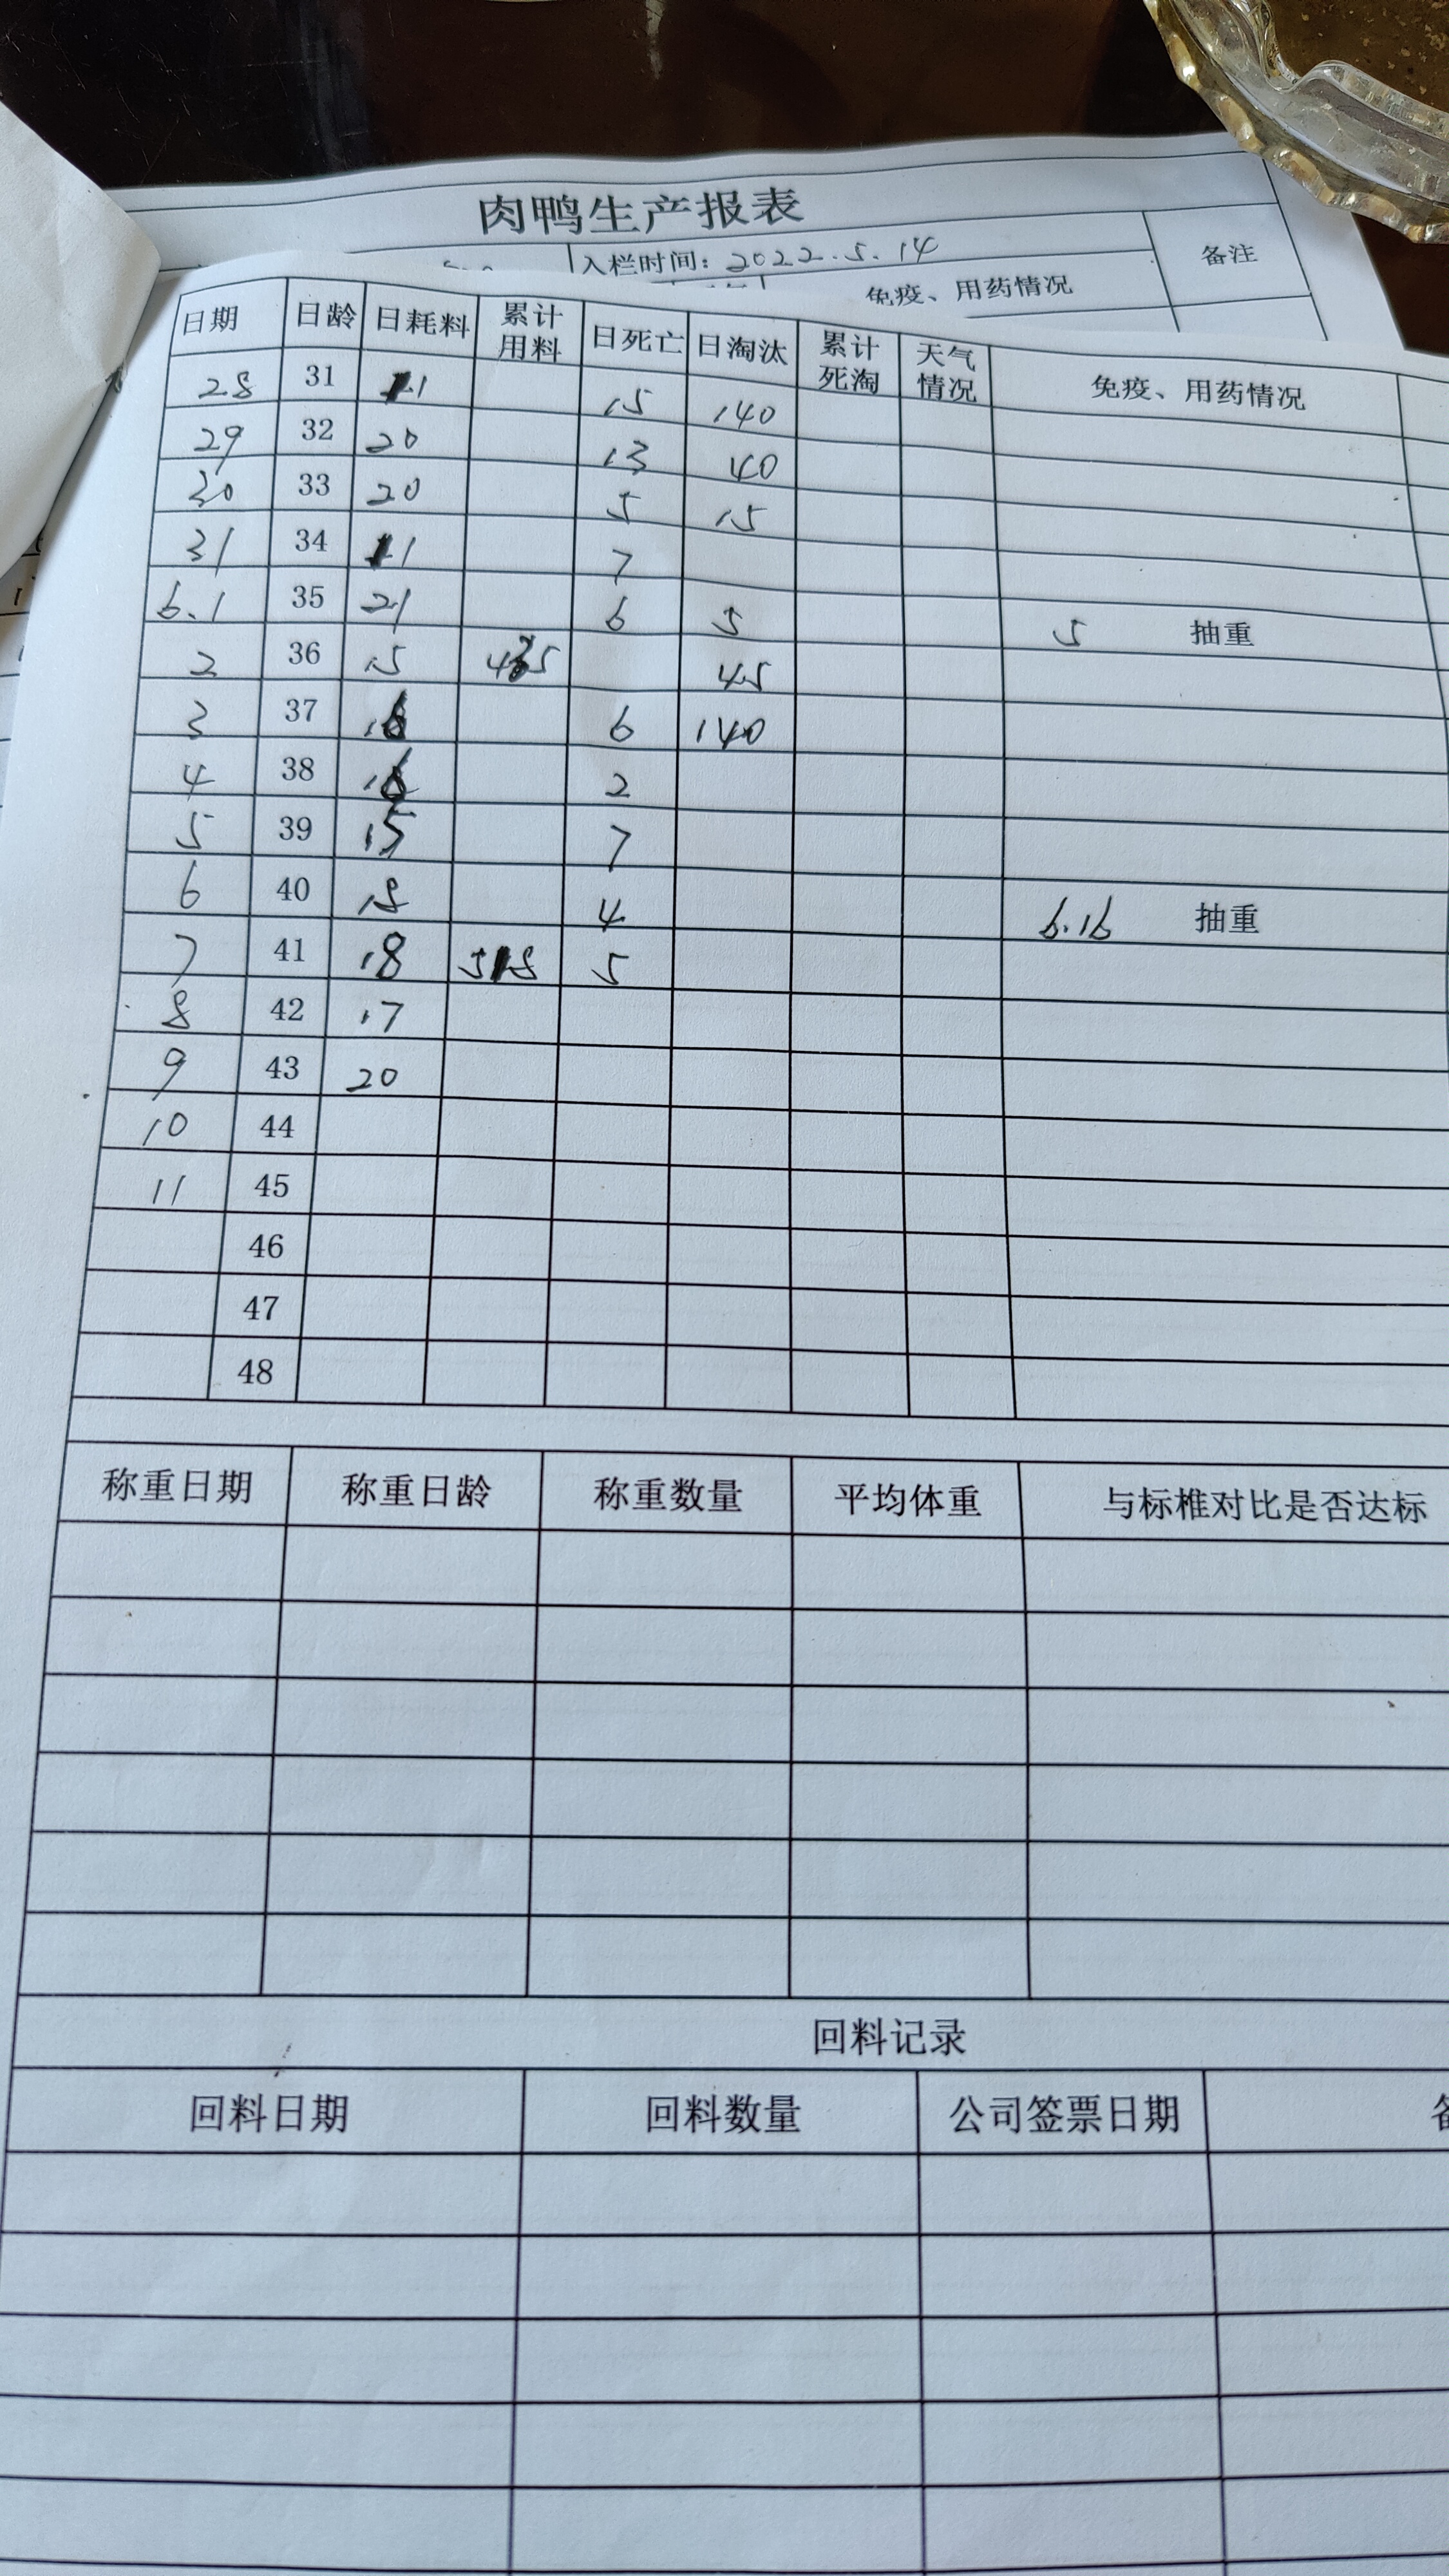 肉鸭生产报表
入栏时间：2022.5.14
免疫、用药情况 备注
日期 日龄 日耗料 累计用料 日死亡 日淘汰 累计死淘 天气情况 免疫、用药情况
28 31 15 140
29 32 20 13 40
30 33 20 5 15
31 34 7
6.1 35 21 6 5 5 抽重
2 36 15 45
3 37 6 140
4 38 2
5 39 15 7
6 40 18 4 6.16 抽重
7 41 18 5
8 42 17
9 43 20
10 44
11 45
46
47
48
称重日期 称重日龄 称重数量 平均体重 与标椎对比是否达标
回料记录
回料日期 回料数量 公司签票日期